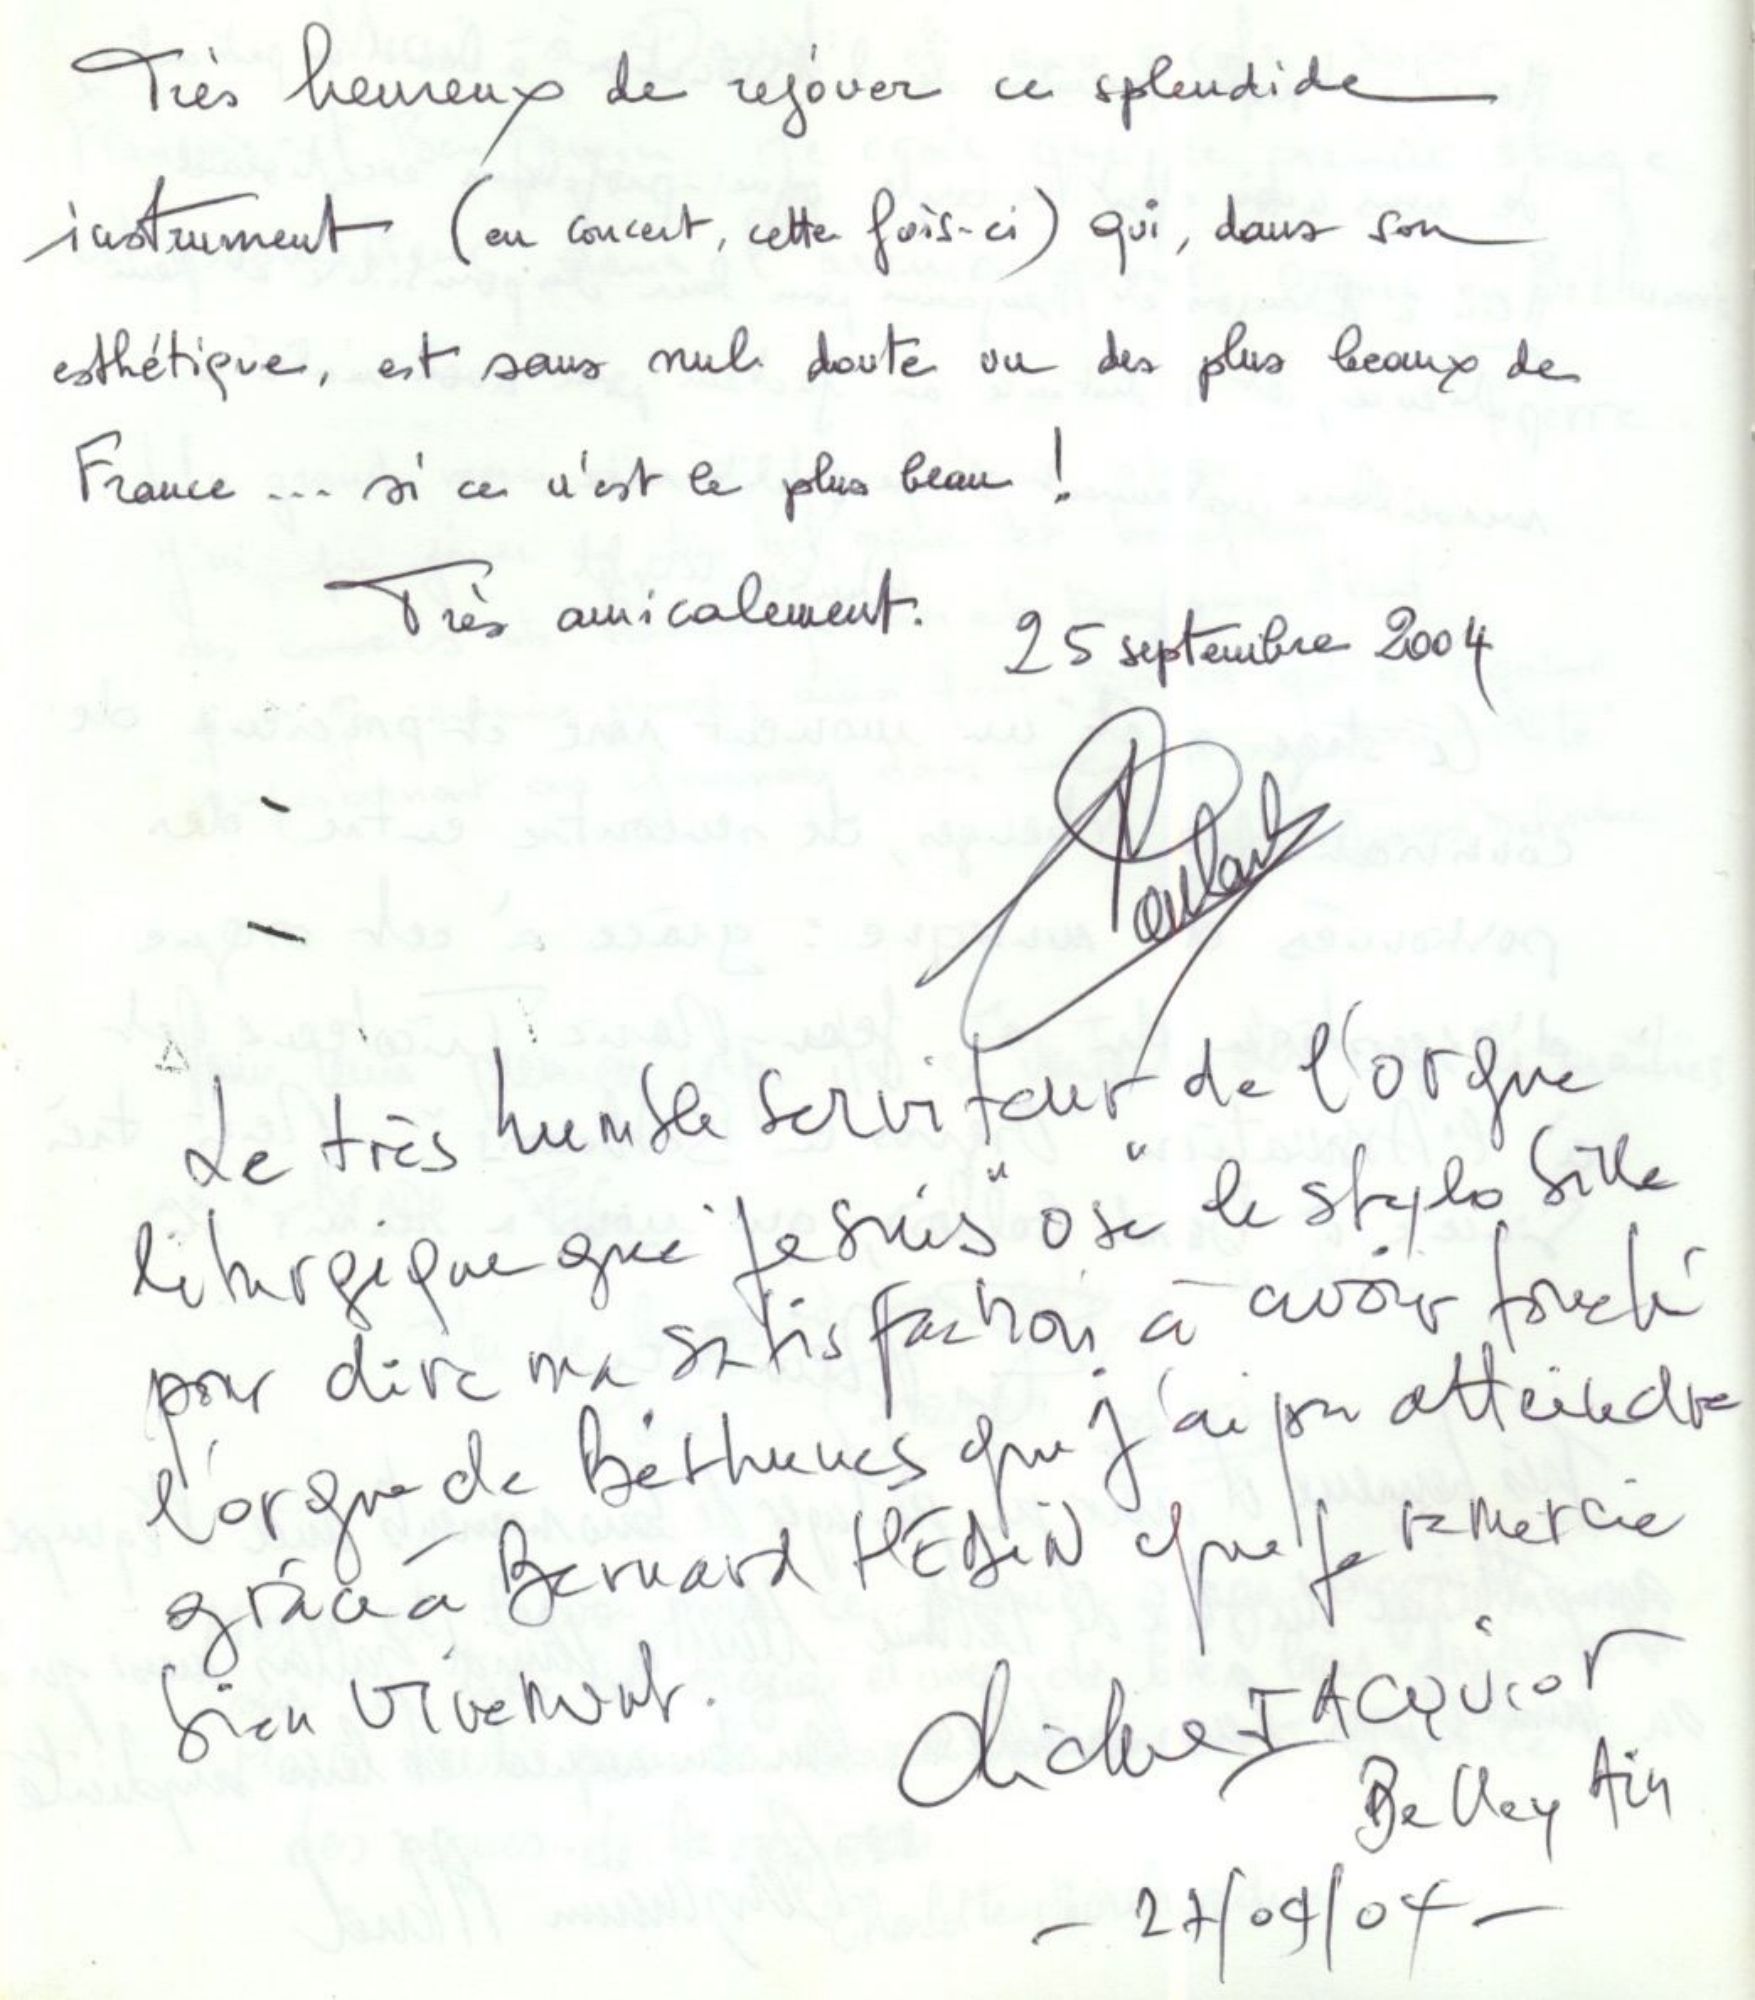 Très heureux de rejouer ce splendide
instrument (en concert, cette fois-ci) qui, dans son
esthétique, est sans nul doute un des plus beaux de
France ... si ce n'est le plus beau !
Très amicalement.
25 septembre 2004
Le très humble serviteur de l'orgue
liturgique que je suis "ose" le stylo bille
pour dire ma satisfaction à avoir touché
l'orgue de Béthunes que j'ai pu atteindre
grâce à Bernard HEDIN que je remercie
bien vivement.
JACQUIOT
Belley Ain
- 27/09/04 -